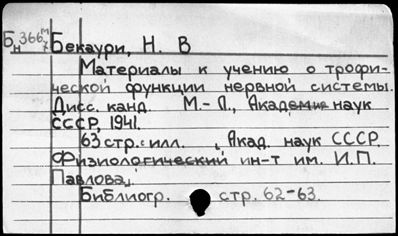 Бн 366м/7 Бекаури, Н. В
Материалы к учению о трофи-
ческой функции нервной системы.
Дисс. канд. М.-Л., Академия наук
СССР, 1941.
63 стр. илл. , Акад. наук СССР.
Физиологический ин-т им. И.П.
Павлова.
Библиогр. стр. 62-63.